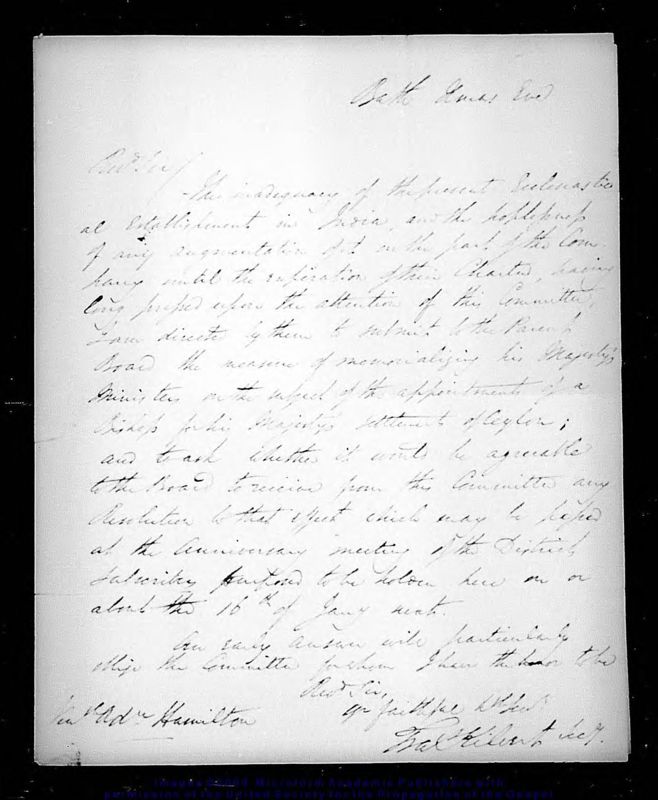 Bath Xmas Eve
Revd Sir/
The inadequacy of the present Ecclesiastic
al Establishment in India, and the hopelessness
of any augmentation of it on the part of the Com-
pany until the expiration of their Charter, having
long pressed upon the attention of this Committee,
I am directed by them to submit to the Parent
Board the measure of memorializing his Majesty's
Ministers on the subject of the appointment of a
Bishop for his Majesty's settlement of Ceylon;
and to ask whether it would be agreeable
to the Board to receive from this Committee any
Resolution to that effect which may be passed
at the Anniversary meeting of the District
Subscribers purposed to be holden here on or
about the 16th of Jany next.
An early answer will particularly
oblige the Committee for whom I have the honor to be
Revd Sir,
Yr faithful
Venble Adn Hamilton
Fras Kilvert Secy.
Images ©2004 Microform Academic Publishers with
permission of the United Society for the Propagation of the Gospel